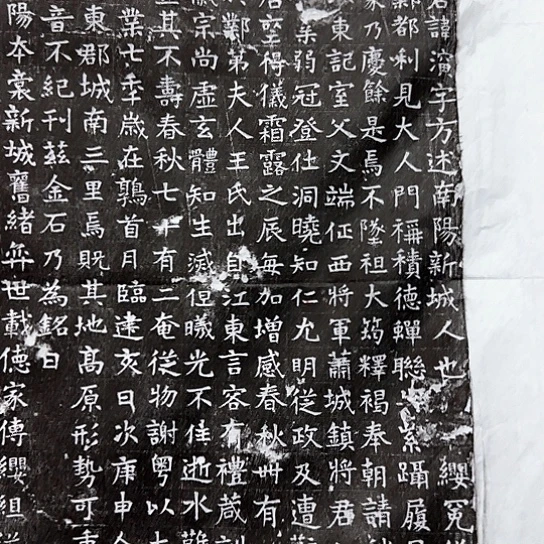 諱演字方述南陽新城人也纓冕
都利見大人門稱積德蟬聯紫躡履
家乃慶餘是焉不墜祖大筠釋褐奉朝請
東記室父文端征西將軍蕭城鎮將君
弱冠登仕洞曉知仁允明從政及遭
得儀霜露之辰每加增感春秋卌有
弟夫人王氏出自江東言容有禮葴訓
宗尚虛玄體知生滅但曦光不佳逝水難
其不壽春秋七十有二奄從物謝粵以大
業七年歲在鶉首月臨建亥日次庚申
東郡城南三里焉既其地高原形勢可
音不紀刊茲金石乃為銘曰
陽本袁新城舊緒弈世載德家傳纓組